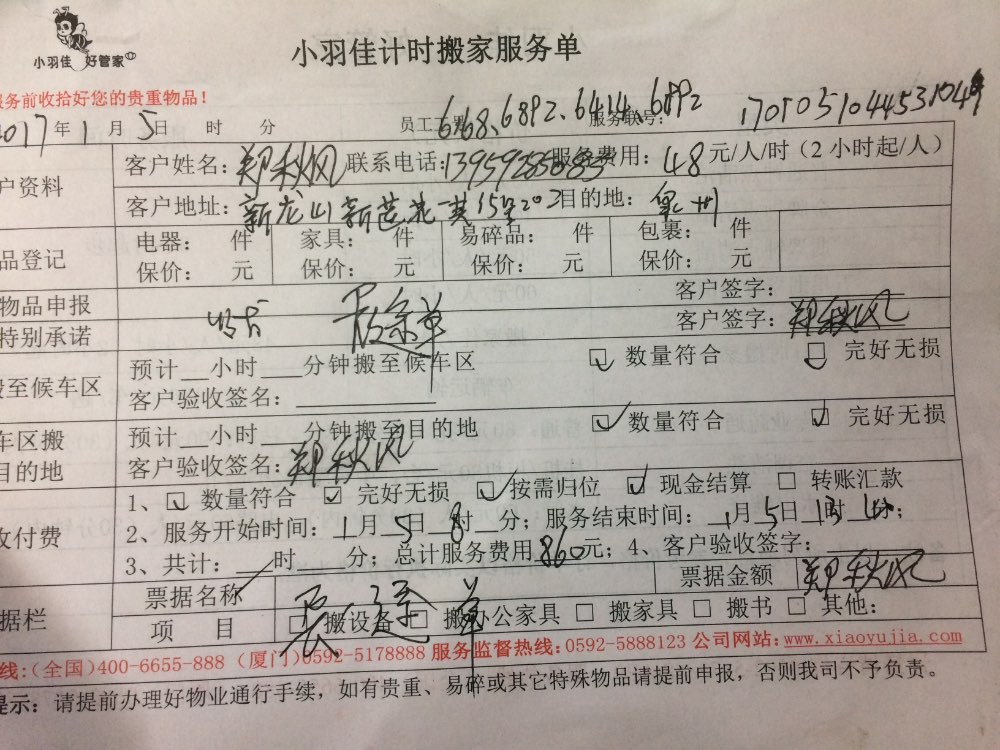 小羽佳 好管家
小羽佳计时搬家服务单
服务前收拾好您的贵重物品！
2017年1月5日 时 分 员工工号: 6168、6892、6414、6892 服务联号:
户资料 客户姓名: 郑秋风 联系电话: 服务费用: 48元/人/时（2小时起/人）
客户地址: 新龙山 目的地:
品登记 电器: 件 家具: 件 易碎品: 件 包裹: 件
保价: 元 保价: 元 保价: 元 保价: 元
物品申报 客户签字:
特别承诺 客户签字: 郑秋风
搬至候车区 预计__小时___分钟搬至候车区 数量符合 完好无损
客户验收签名:
车区搬 预计__小时___分钟搬至目的地 数量符合 完好无损
目的地 客户验收签名: 郑秋风
1、 数量符合 完好无损 按需归位 现金结算 转账汇款
收付费 2、服务开始时间: 1月5日8时 分; 服务结束时间: 1月5日 时 分;
3、共计: 时 分; 总计服务费用860元; 4、客户验收签字:
据栏 票据名称 票据金额 郑秋风
项 目 搬设备 搬办公家具 搬家具 搬书 其他:
线:(全国)400-6655-888 (厦门)0592-5178888 服务监督热线:0592-5888123 公司网站:www.xiaoyujia.com
提示: 请提前办理好物业通行手续，如有贵重、易碎或其它特殊物品请提前申报，否则我司不予负责。